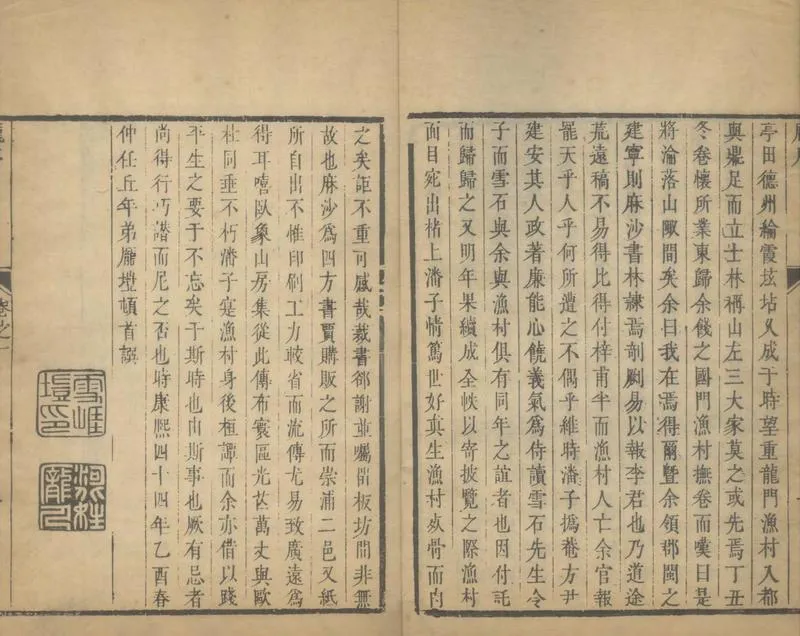 亭田德州綸霞玆坫又成于時望重龍門漁村入都
與鼎足而立士林稱山左三大家莫之或先焉丁丑
冬卷懷所業東歸余餞之國門漁村撫卷而嘆曰是
將淪落山陬間矣余曰我在焉得爾曁余領郡閩之
建寧則麻沙書林隸焉剞劂易以報李君也乃道途
荒遠稿不易得比得付梓甫半而漁村人亡余官報
罷天乎人乎何所遭之不偶乎維時潘子撝菴方尹
建安其人政著廉能心饒義氣爲侍讀雪石先生令
子而雪石與余與漁村俱有同年之誼者也因付託
而歸歸之又明年果續成全帙以寄披覽之際漁村
面目宛出楮上潘子情篤世好眞生漁村故骨而肉
之矣詎不重可感哉裁書郤謝並囑留板坊間非無
故也麻沙爲四方書賈購販之所而崇浦二邑又紙
所自出不惟印刷工力較省而流傳尤易致廣遠爲
得耳嘻臥象山房集從此傳布寰區光芒萬丈與歐
杜同垂不朽潘子寔漁村身後桓譚而余亦借以踐
平生之要于不忘矣于斯時也由斯事也厥有忌者
尚得行丐譖而尼之否也時康熙四十四年乙酉春
仲任丘年弟龐塏頓首譔
雪崖
塏印
卷之一